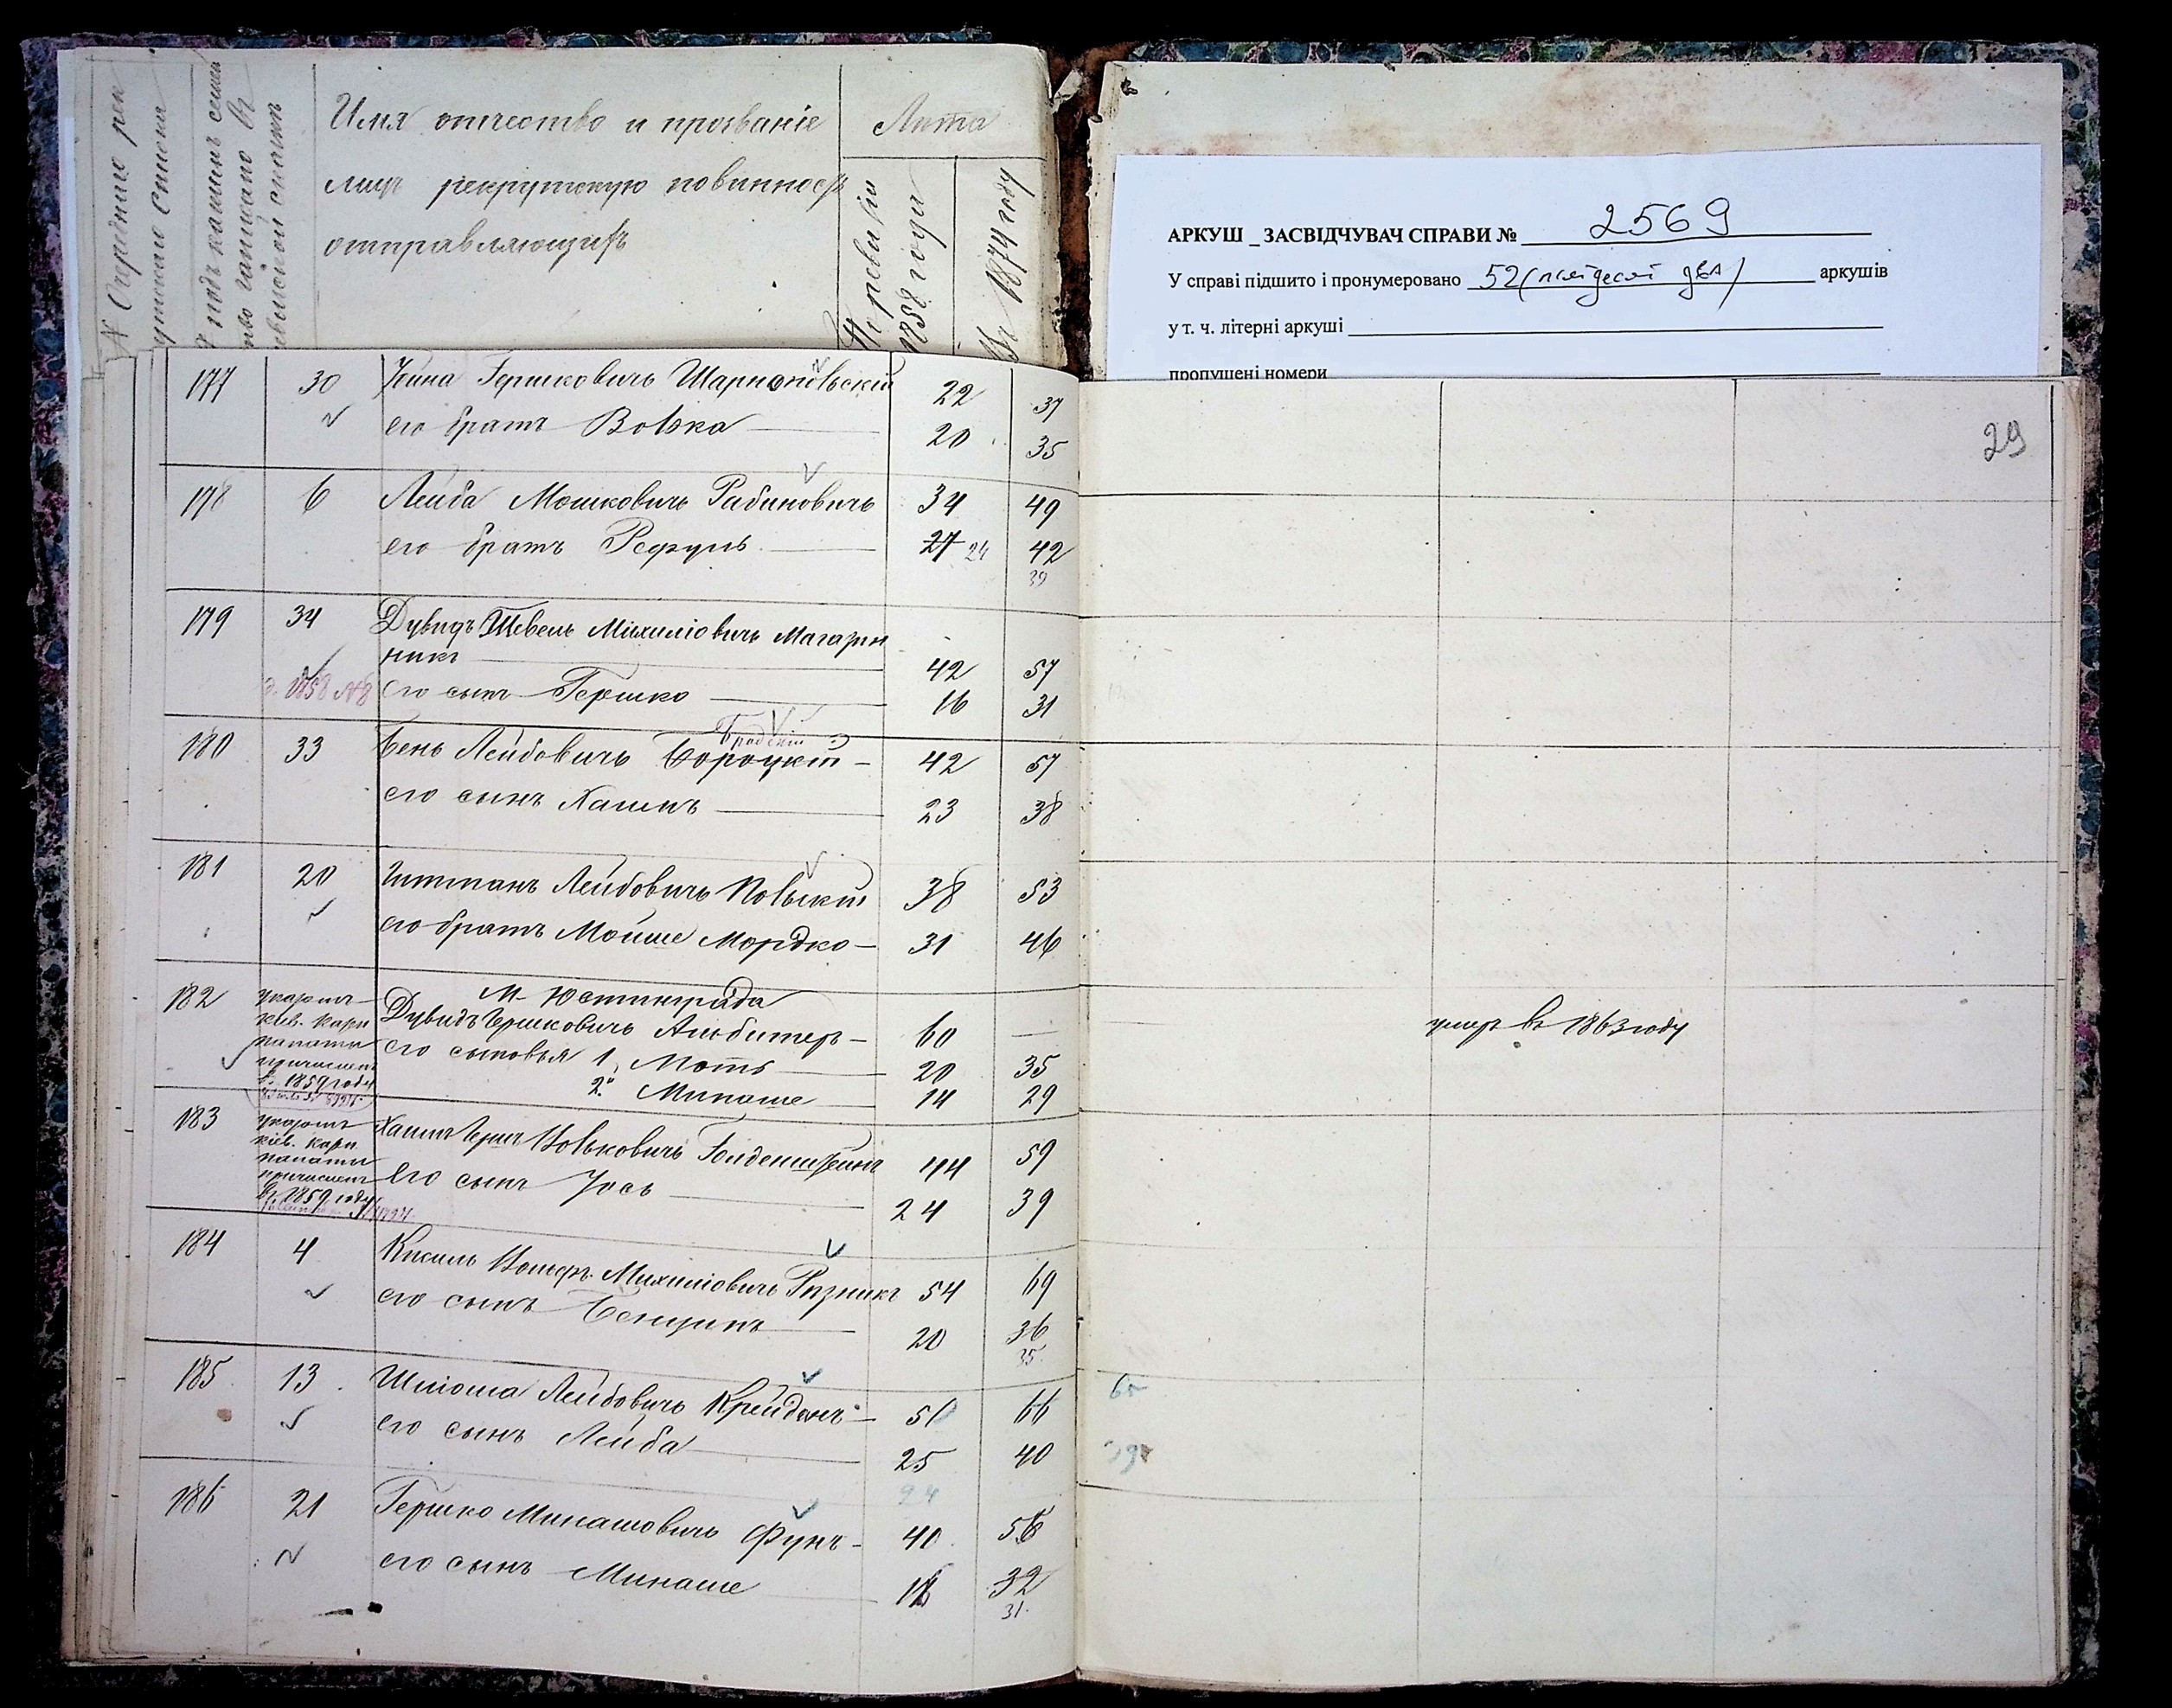 № Очередного рек
рутскаго списка
№ подъ какимъ семей
ство записано въ
ревизской сказкѣ
Имя отчество и прозваніе
лицъ рекрутскую повинность
отправляющихъ
Лѣта
По ревизіи
1858 года
Въ 1874 году
АРКУШ _ ЗАСВІДЧУВАЧ СПРАВИ № 2569
У справі підшито і пронумеровано 52 (пятдесят два) аркушів
у т. ч. літерні аркуші
пропущені номери
29
177 30 Хуина Гершковичъ 22 37
его братъ Волька 20 35
178 6 Лейба Мошковичъ Рабиновичъ 34 49
его братъ Рефуль 27 24 42
39
179 34 Дувидъ Шевель Михиліовичъ Магазин
никъ 42 57
1858 №8 его сынъ Гершко 16 31
Бродскій
180 33 Бень Лейбовичъ Бороцкій 42 57
его сынъ Хаимъ 23 38
181 20 Лейбовичъ Польскій 38 53
его братъ Мойше Мордко 31 46
М. Юстинграда
182 указомъ Дувидъ Гершковичъ Альбитеръ 60 — умеръ въ 1863 году
кіев. казн
палаты его сыновья 1, Моть 20 35
причислен
въ 1859 году 2. Минаше 14 29
183 указомъ Хаимъ Гершъ Вольковичъ Голденштейнъ 44 59
кіев. казн
палаты его сынъ Іось 24 39
причислен
въ 1859 году
184 4 Кисиль Михиліовичъ Рѣзникъ 54 69
его сынъ Бенціонъ 20 36
35
185 13 Шліома Лейбовичъ Крейданъ 51 66 65
его сынъ Лейба 25 40 39
24
186 21 Гершко Минашовичъ Фунъ 40 56
его сынъ Минаше 16 32
31